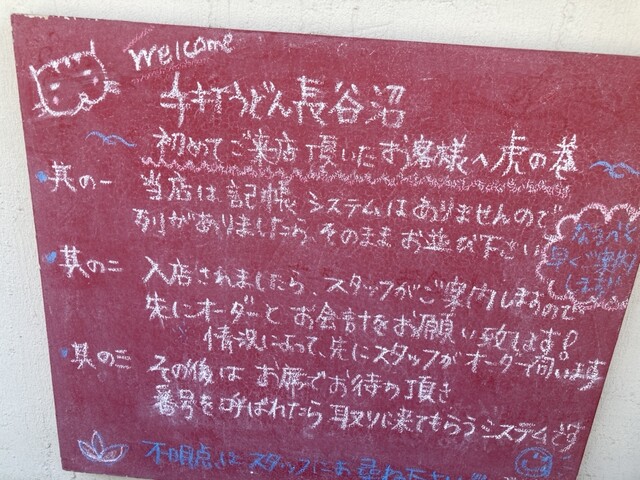 Welcome
手打うどん長谷沼
初めてご来店頂いたお客様へ虎の巻
其の一 当店は記帳システムはありませんので
列がありましたら、そのままお並び下さい
なるべく
早くご案内
します
其の二 入店されましたら、スタッフがご案内しますので
先にオーダーとお会計をお願い致します!
情況によって、先にスタッフがオーダー伺います
其の三 その後はお席でお待ち頂き
番号を呼ばれたら取りに来てもらうシステムです
不明点はスタッフにお尋ね下さい!!